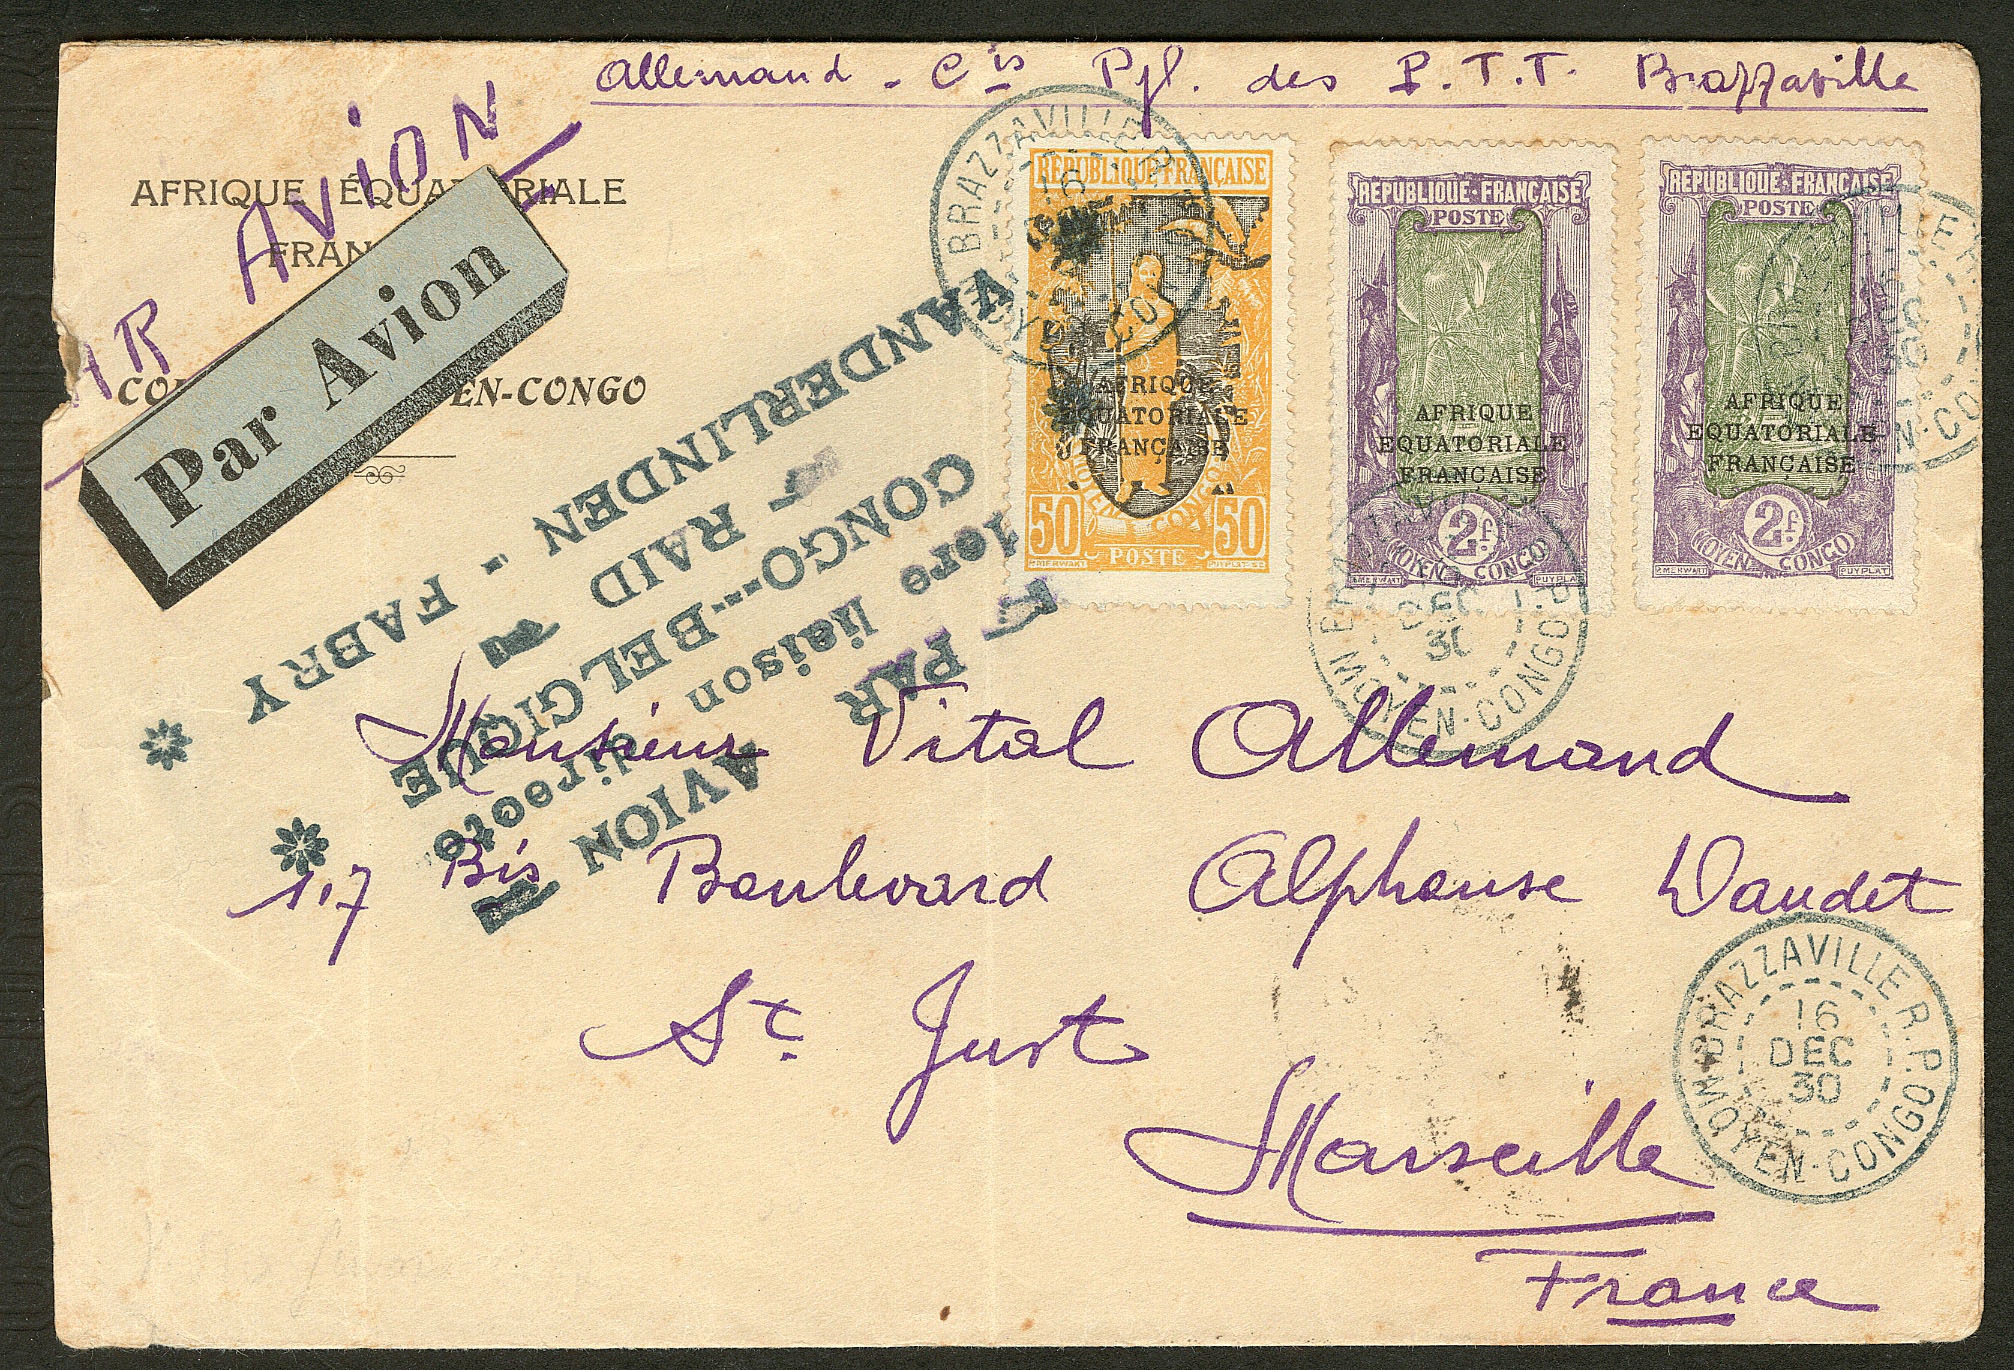 Allemand - Cis Ppl. des P.T.T. Brazzaville
PAR AVION
AFRIQUE ÉQUATORIALE
FRAN
CO EN-CONGO
Par Avion
BRAZZAVILLE R.P.
16
RÉPUBLIQUE FRANÇAISE
AFRIQUE
EQUATORIALE
FRANÇAISE
MOYEN CONGO
50 50
POSTE
P.MERWART PUYPLAT SC
RÉPUBLIQUE FRANÇAISE
POSTE
AFRIQUE
EQUATORIALE
FRANÇAISE
2f
MOYEN CONGO
P.MERWART PUYPLAT
DEC
30
MOYEN-CONGO
RÉPUBLIQUE FRANÇAISE
POSTE
AFRIQUE
EQUATORIALE
FRANÇAISE
2f
MOYEN CONGO
P.MERWART PUYPLAT
PAR AVION
1ere liaison directe
CONGO---BELGIQUE
RAID
VANDERLINDEN - FABRY
Monsieur Vital Allemand
17 Bis Boulevard Alphonse Daudet
St Just
Marseille
France
BRAZZAVILLE R.P.
16
DEC
30
MOYEN-CONGO